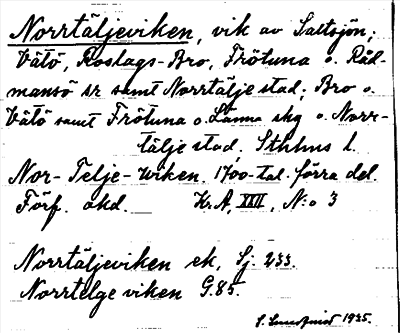 Norrtäljeviken, vik av Saltsjön;
Vätö, Roslags-Bro, Frötuna o. Råd-
mansö sr samt Norrtälje stad; Bro o.
Vätö samt Frötuna o. Länna skg o. Norr-
tälje stad. Sthlms l.
Nor-Telje-wiken, 1700-tal. förra del.
Förf. okd. Kr.A, XXII, N:o 3
Norrtäljeviken ek. Sj. 233.
Norrtelge viken G.85.
S. Lundqvist 1925.